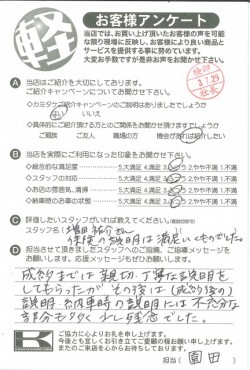 軽
お客様アンケート
当店では、お買い上げ頂いたお客様の声を可能な
限り現場に反映し、お客様により良い商品と
サービスを提供する事に努めています。
大変お手数ですが是非お声をお聞かせ下さい。
A 当店はご紹介を大切にしております。
ご紹介キャンペーンについてお聞かせ下さい。
◇カミタケご紹介キャンペーンのご説明はありましたでしょうか
はい いいえ
◇具体的にご紹介頂ける方とのご関係をお聞かせ頂けますでしょうか
ご親族 ご友人 職場の方 機会があれば紹介したい
B 当店を実際にご利用になった印象をお聞かせ下さい。
◇総合的な満足度 5.大満足 4.満足 3.ふつう 2.やや不満 1.不満
◇スタッフの対応 5.大満足 4.満足 3.ふつう 2.やや不満 1.不満
◇お店の雰囲気、清掃 5.大満足 4.満足 3.ふつう 2.やや不満 1.不満
◇納車時のお車の状態 5.大満足 4.満足 3.ふつう 2.やや不満 1.不満
C 評価したいスタッフがいれば教えてください。
スタッフ名
説明は満足いくものでした。
D 担当させて頂きましたスタッフへのご指摘、ご感想メッセージを
お願いします。応援メッセージもぜひお願いします。
成約までは親切、丁寧な説明を
してもらったが、その後は(成約後の)
説明、納車時の説明には不充分な
部分も多く少し残念でした。
K
ご協力に心よりお礼を申し上げます。
今後とも宜しくお引き立てご愛顧の程お願い申し上げます。
またのご来店を心からお待ちしております。
担当( 園田 )